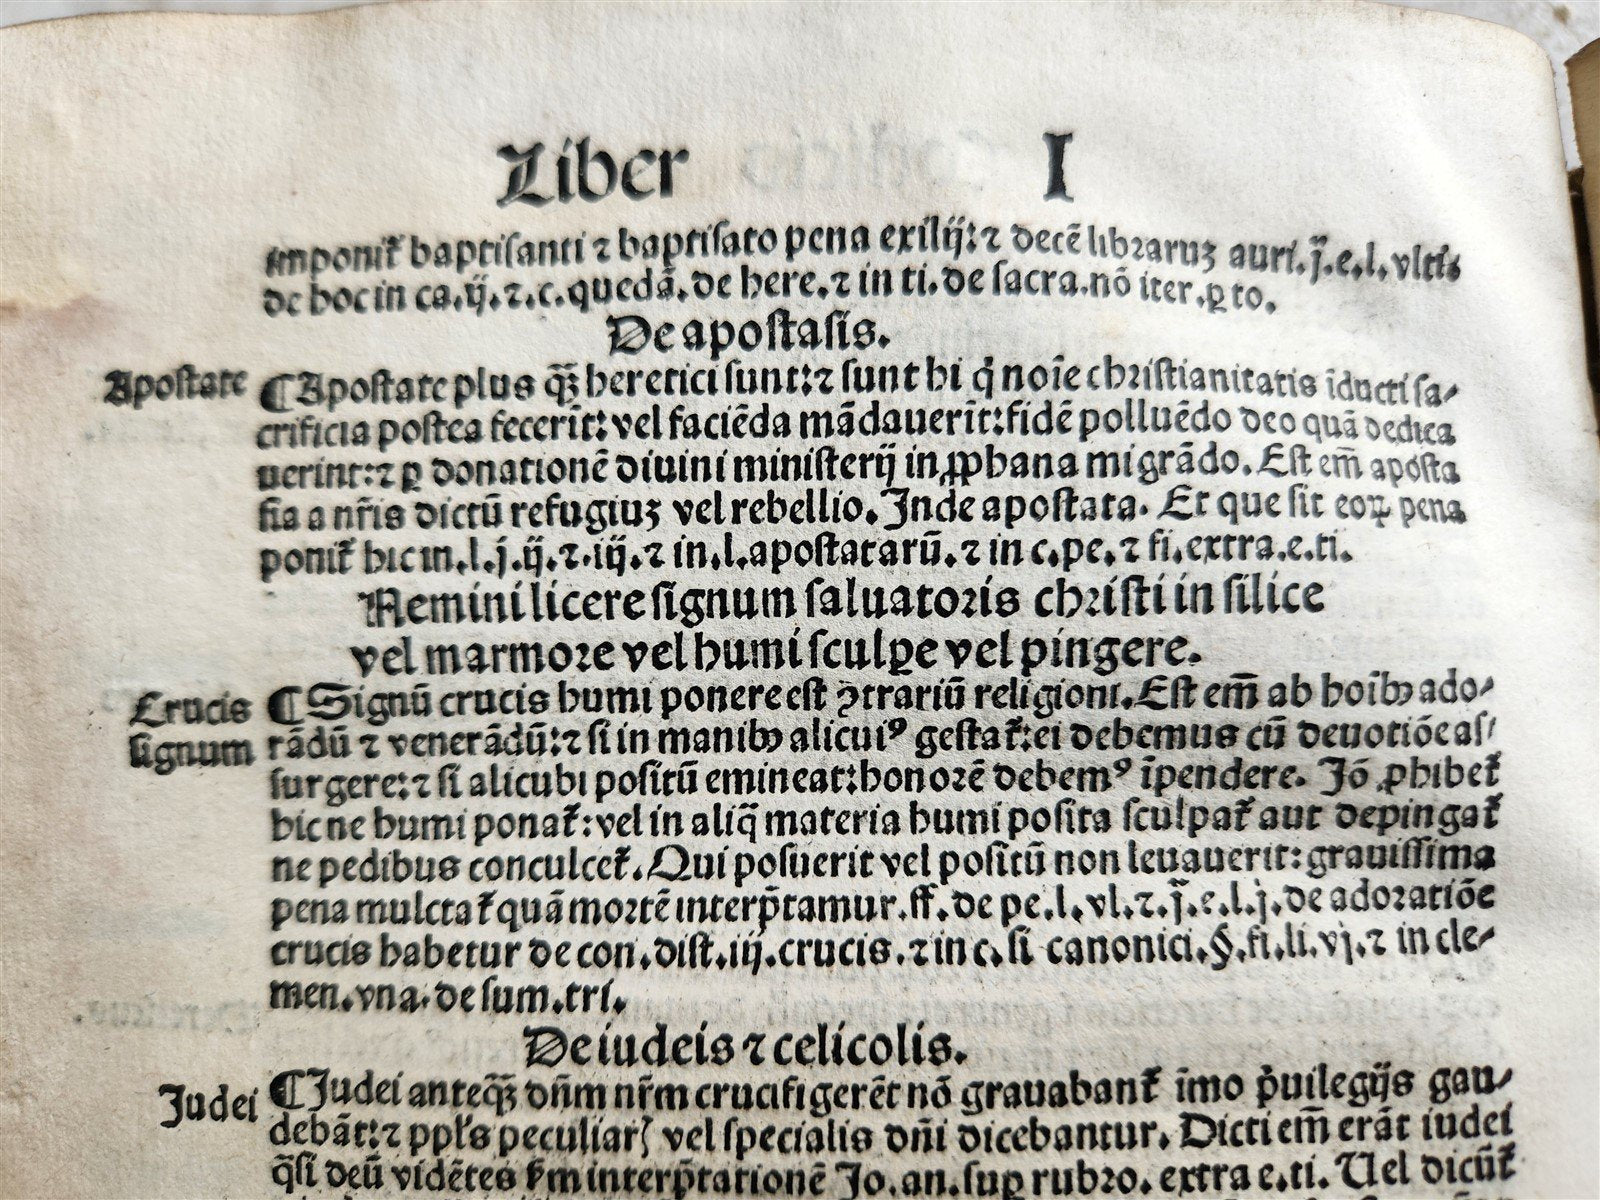 Liber I
imponit᷑ baptiſanti ⁊ baptiſato pena exilij: ⁊ decē libraruꝫ auri.j̄.e.l.vltīs
de hoc in ca.ij.⁊.c.quedā.de here.⁊ in ti.de ſacra.nō iter.ꝑ to.
De apoſtaſis.
Apoſtate
¶ Apoſtate plus q̄ꝫ heretici ſunt: ⁊ ſunt hi q̇ noīe chriſtianitatis īducti ſa⸗
crificia poſtea fecerīt: vel faciēda mādauerīt: fidē polluēdo deo quā dedica
uerint: ⁊ ꝑ donationē diuini miniſterij in ꝓphana migrādo. Eſt em̄ apoſta
ſia a nr̄is dictū refugiuꝫ vel rebellio. Inde apoſtata. Et que ſit eoꝝ pena
ponit᷑ hic in.l.j.ij.⁊.iij.⁊ in.l.apoſtatarū.⁊ in c.pe.⁊ fi.extra.e.ti.
Nemini licere ſignum ſaluatoris chriſti in ſilice
vel marmore vel humi ſculꝑe vel pingere.
Crucis
ſignum
¶ Signū crucis humi ponere eſt ꝯtrariū religioni. Eſt em̄ ab hoībꝫ ado⸗
rādū ⁊ venerādū: ⁊ ſi in manibꝫ alicuiꝰ geſtat᷑: ei debemus cū deuotiōe aſ⸗
ſurgere: ⁊ ſi alicubi poſitū emineat: honorē debemꝰ īpendere. Iō ꝓhibet᷑
hic ne humi ponat᷑: vel in aliq̄ materia humi poſita ſculpat᷑ aut depingat᷑
ne pedibus conculcet᷑. Qui poſuerit vel poſitū non leuauerit: grauiſſima
pena mulctat᷑ quā mortē interp̄tamur.ff.de pe.l.vl.⁊.j̄.e.l.j.de adoratiōe
crucis habetur de con.diſt.iij.crucis.⁊ in c.ſi canonici.§.fi.li.vj.⁊ in cle⸗
men.vna.de ſum.tri.
De iudeis ⁊ celicolis.
Judei
¶ Judei anteq̄ꝫ dn̄m nr̄m crucifigerēt nō grauabant᷑ īmo ṗuilegijs gau⸗
debāt: ⁊ ppl's peculiarꝭ vel ſpecialis dn̄i dicebantur. Dicti em̄ erāt iudei
q̄ſi deū vidētes ẜm interp̄tationē Jo.an.ſuꝑ rubro.extra e.ti. Uel dicūt᷑